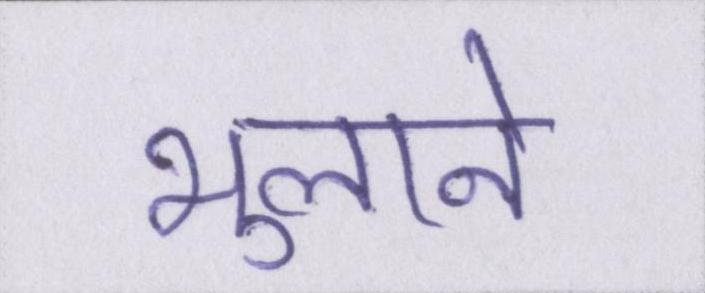 भुलाने